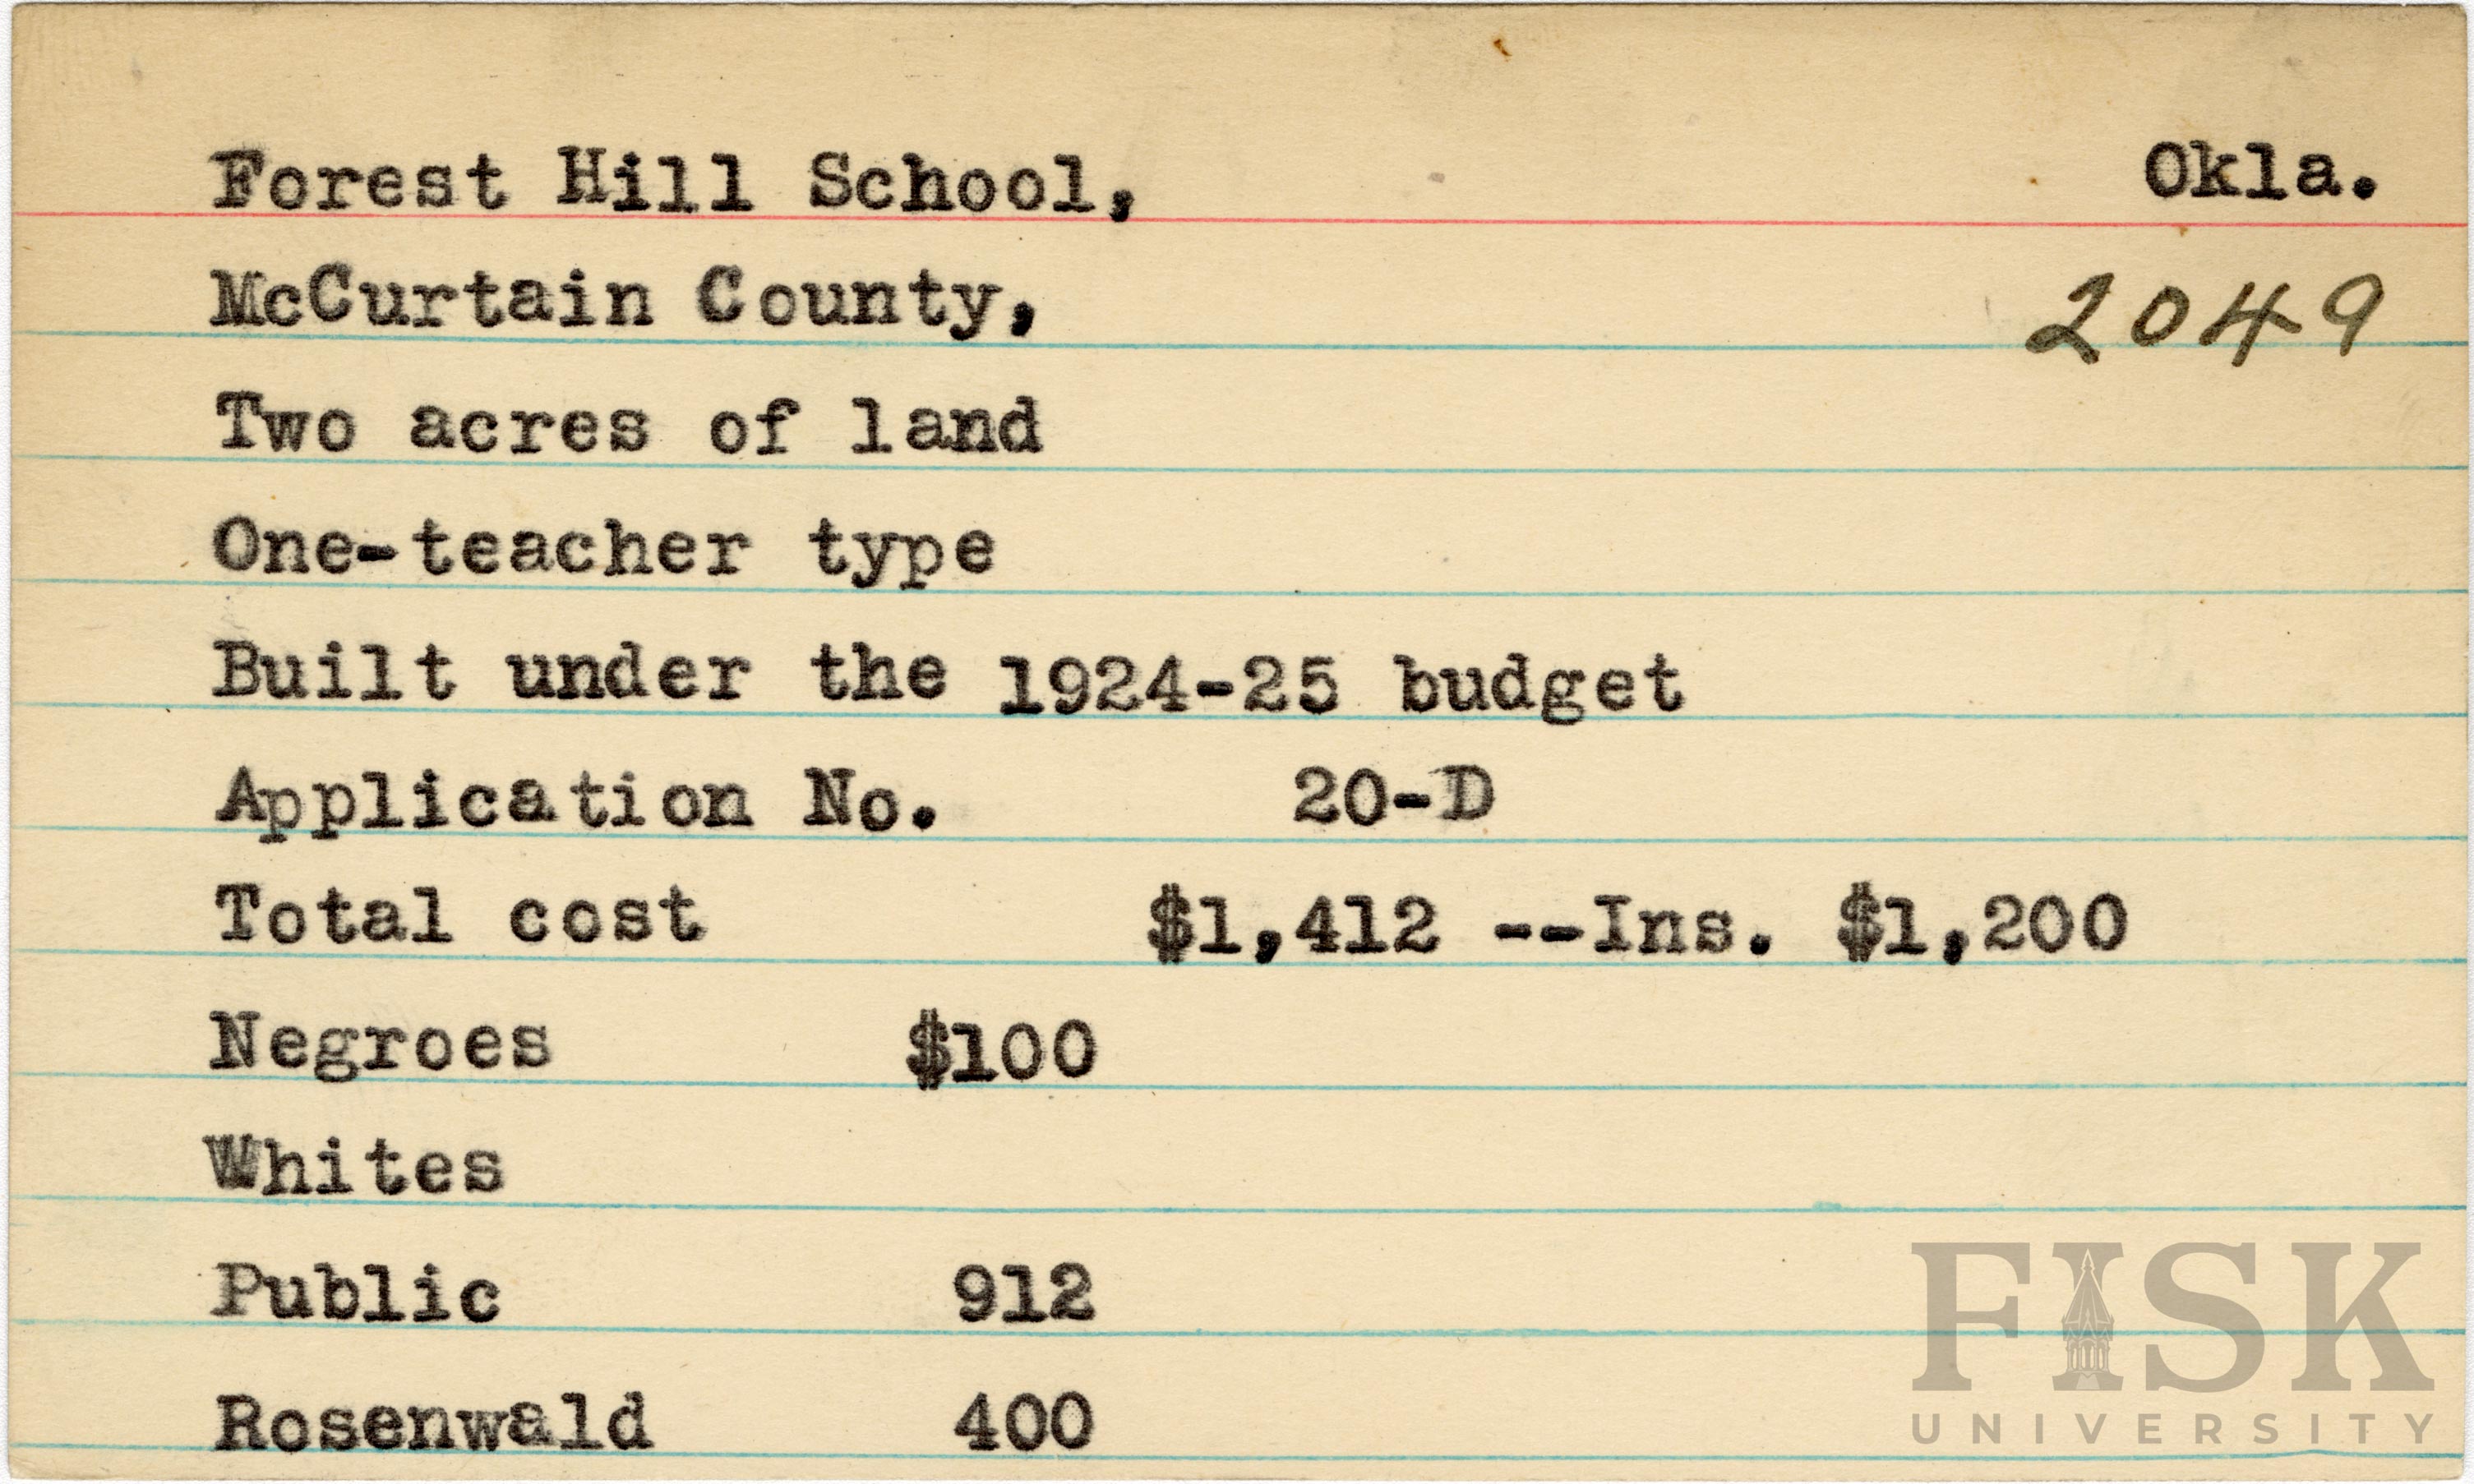 Forest Hill School, Okla.
McCurtain County, 2049
Two acres of land
One-teacher type
Built under the 1924-25 budget
Application No. 20-D
Total cost $1,412 --Ins. $1,200
Negroes $100
Whites
Public 912
Rosenwald 400
FISK
UNIVERSITY